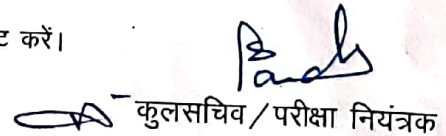 ट करें।
कुलसचिव/परीक्षा नियंत्रक